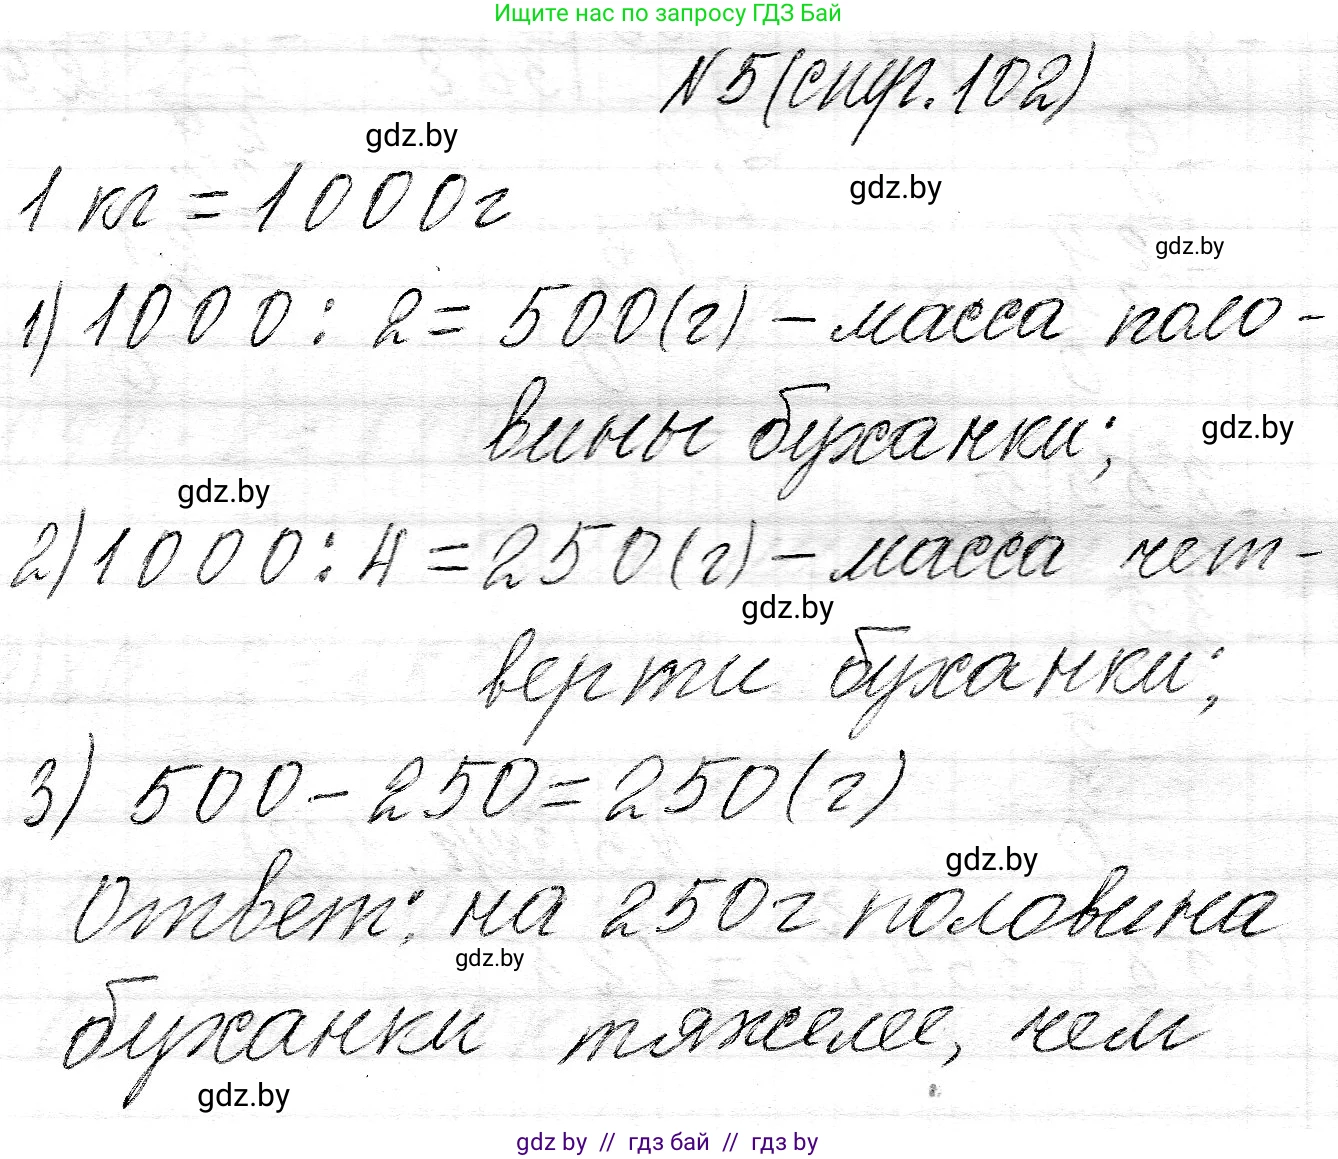 Ищите нас по запросу ГДЗ Бай
№5(стр.102)
gdz.by
gdz.by
1 кг = 1000г
gdz.by
1) 1000 : 2 = 500(г) – масса поло-
вины буханки;
gdz.by
gdz.by
2) 1000 : 4 = 250(г) – масса чет-
gdz.by
верти буханки;
3) 500 – 250 = 250(г)
gdz.by
Ответ: на 250г половина
gdz.by
буханки тяжелее, чем
gdz.by
gdz by // гдз бай // гдз by